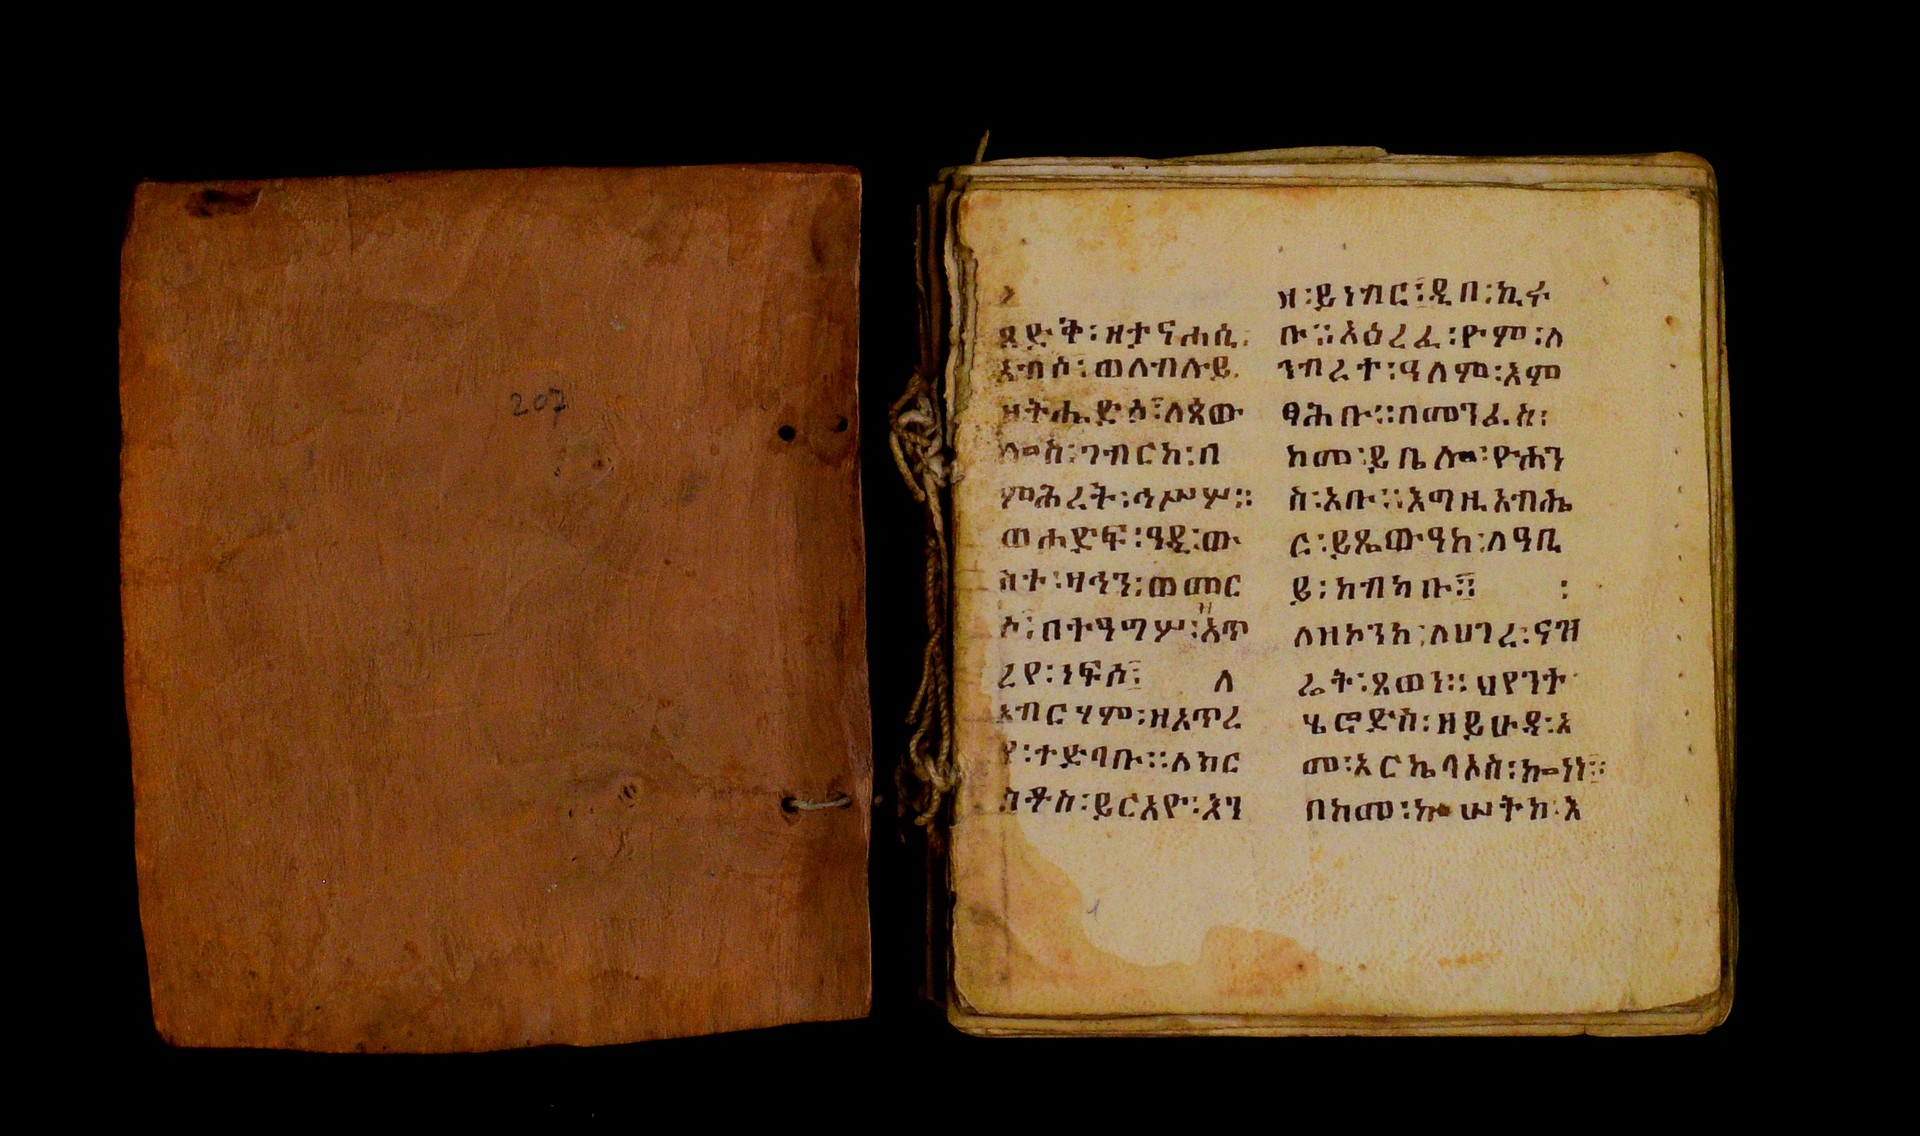 207
ጸድቅ፡ዘታናሐሲ
አብሶ፡ወለብሉይ
ዘትሔድሶ፤ለጳው
ሎስ፡ገብርከ፡በ
ምሕረት፡ኀሥሦ።
ወሐድፍ፡ዓዲ፡ው
ስተ፡ዛኅን፡ወመር
ሶ፡በተዓግሦ፡አጥ
ረየ፡ነፍሶ፤ ለ
አብርሃም፡ዘአጥረ
የ፡ተድባቡ።ለክር
ስቶስ፡ይርአዮ፡እን
ዘ፡ይነብር፡ዲበ፡ኪሩ
ቡ።አዕረፈ፡ዮም፡ለ
ንብረተ፡ዓለም፡እም
ፃሕቡ።በመንፈስ፡
ከመ፡ይቤሎ፡ዮሐን
ስ፡አቡ።እግዚአብሔ
ር፡ይጼውዓከ፡ለዓቢ
ይ፡ክብካቡ።
ለዘኮንከ፡ለሀገረ፡ናዝ
ሬት፡ጸወን።ህየንተ
ሄሮድስ፡ዘይሁዳ፡እ
መ፡አርኬላኦስ፡ኰነነ።
በከመ፡ኮሡትከ፡እ
1